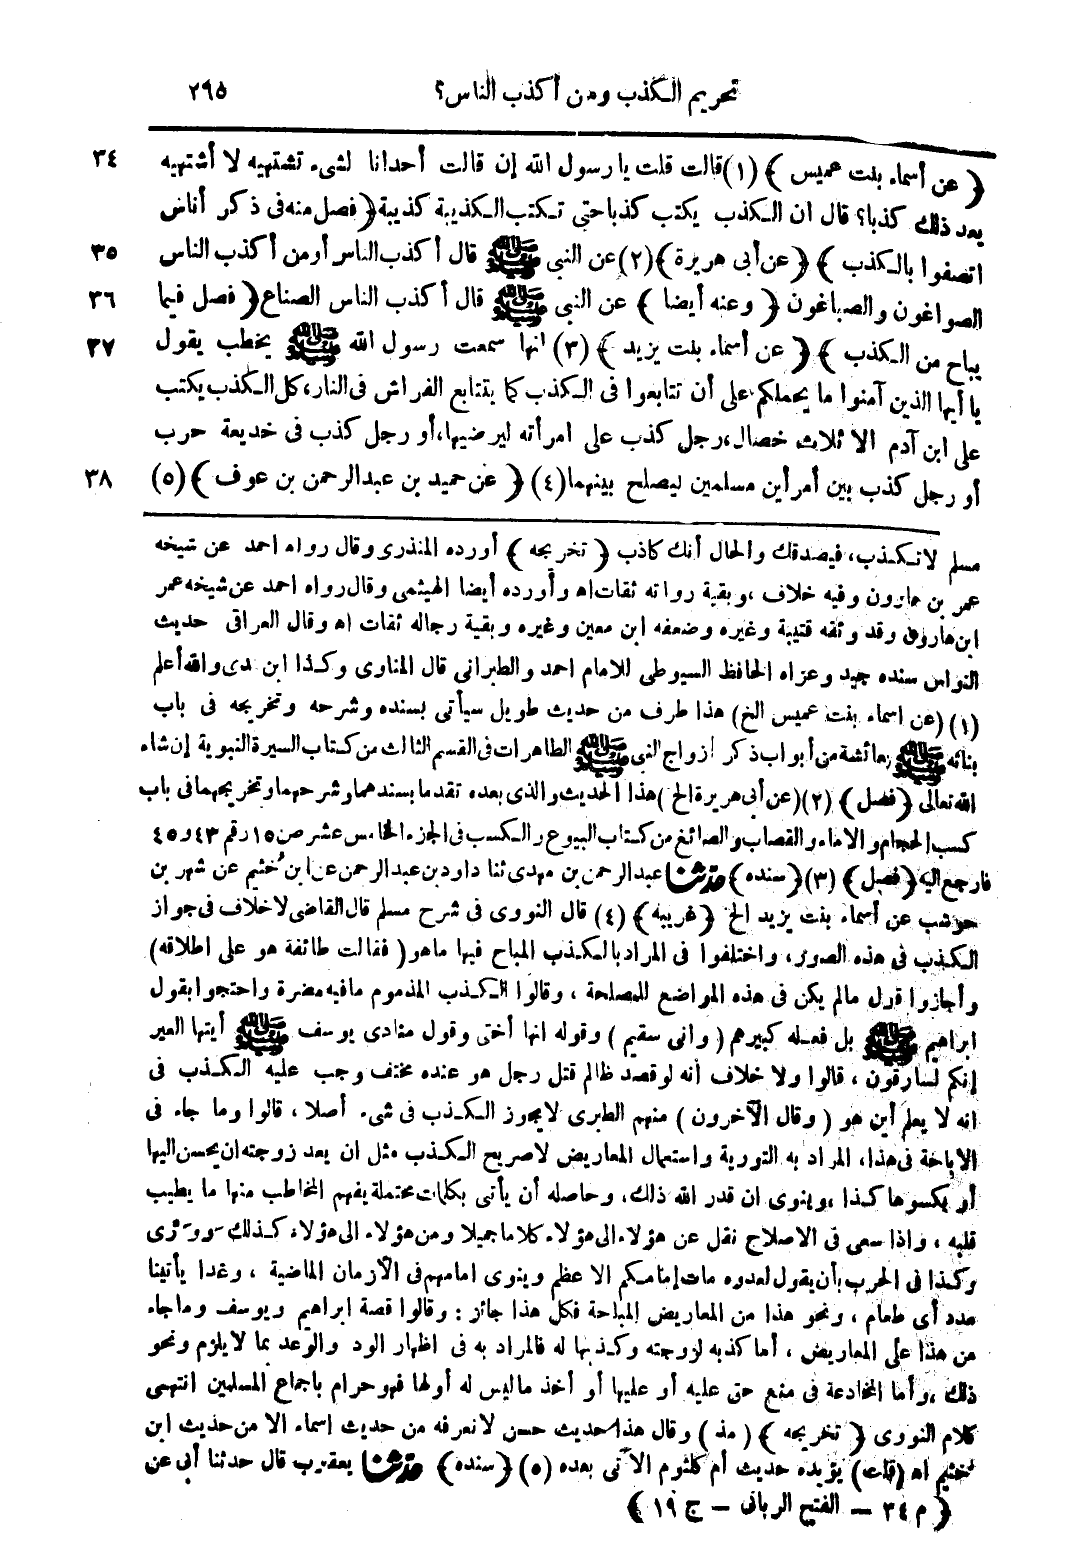 تحريم الكذب ومن أكذب الناس؟ ٢٩٥
﴿ عن أسماء بنت عميس ﴾ (١) قالت قلت يا رسول الله إن قالت أحدانا لشىء تشتهيه لا أشتهيه ٣٤
يعد ذلك كذبا؟ قال ان الكذب يكتب كذبا حتى تكتب الكذيبة كذيبة ﴿ فصل منه فى ذكر أناس
اتصفوا بالكذب ﴾ ﴿ عن أبى هريرة ﴾ (٢) عن النبى ﷺ قال أكذب الناس أو من أكذب الناس ٣٥
الصواغون والصباغون ﴿ وعنه أيضا ﴾ عن النبى ﷺ قال أكذب الناس الصناع ﴿ فصل فيما ٣٦
يباح من الكذب ﴾ ﴿ عن أسماء بنت يزيد ﴾ (٣) انها سمعت رسول الله ﷺ يخطب يقول ٣٧
يا أيها الذين آمنوا ما يحملكم على أن تتابعوا فى الكذب كما يتتابع الفراش فى النار، كل الكذب يكتب
على ابن آدم الا ثلاث خصال، رجل كذب على امرأته ليرضيها، أو رجل كذب فى خديعة حرب
أو رجل كذب بين أمرأين مسلمين ليصلح بينهما (٤) ﴿ عن حميد بن عبد الرحمن بن عوف ﴾ (٥) ٣٨
مسلم لا تكذب، فيصدقك والحال أنك كاذب ﴿ تخريجه ﴾ أورده المنذرى وقال رواه احمد عن شيخه
عمر بن هارون وفيه خلاف، وبقية رواته ثقات اه وأورده أيضا الهيثمى وقال رواه احمد عن شيخه عمر
ابن هارون وقد وثقه قتيبة وغيره وضعفه ابن معين وغيره وبقية رجاله ثقات اه وقال العراقى حديث
النواس سنده جيد وعزاه الحافظ السيوطى للامام احمد والطبرانى قال المناوى وكذا ابن عدى والله أعلم
(١) (عن اسماء بنت عميس الخ) هذا طرف من حديث طويل سيأتى بسنده وشرحه وتخريجه فى باب
بنائه ﷺ بعائشة من أبواب ذكر أزواج النبى ﷺ الطاهرات فى القسم الثالث من كتاب السيرة النبوية إن شاء
الله تعالى ﴿ فصل ﴾ (٢) (عن أبى هريرة الخ) هذا الحديث والذى بعده تقدما بسندهما وشرحهما وتخريجهما فى باب
كسب الحجام والاماء والقصاب والصائغ من كتاب البيوع والكسب فى الجزء الخامس عشر ص ١٥ رقم ٤٣ و ٤٥
فارجع اليه ﴿ فصل ﴾ (٣) ﴿ سنده ﴾ حدثنا عبد الرحمن بن مهدى ثنا داود بن عبد الرحمن عن ابن خثيم عن شهر بن
حوشب عن أسماء بنت يزيد الخ ﴿ غريبه ﴾ (٤) قال النووى فى شرح مسلم قال القاضى لا خلاف فى جواز
الكذب فى هذه الصور، واختلفوا فى المراد بالكذب المباح فيها ما هو (فقالت طائفة هو على اطلاقه)
وأجازوا قول مالم يكن فى هذه المواضع للمصلحة، وقالوا الكذب المذموم مافيه مضرة واحتجوا بقول
ابراهيم ﷺ بل فعله كبيرهم (وانى سقيم) وقوله انها أختى وقول منادى يوسف ﷺ أيتها العير
إنكم لسارقون، قالوا ولا خلاف أنه لو قصد ظالم قتل رجل هو عنده مختف وجب عليه الكذب فى
انه لا يعلم أين هو (وقال الآخرون) منهم الطبرى لا يجوز الكذب فى شىء أصلا، قالوا وما جاء فى
الاباحة فى هذا، المراد به التورية واستعمال المعاريض لا صريح الكذب مثل ان يعد زوجته ان يحسن اليها
أو يكسوها كذا، وينوى ان قدر الله ذلك، وحاصله أن يأتى بكلمات محتملة يفهم المخاطب منها ما يطيب
قلبه، واذا سعى فى الاصلاح نقل عن هؤلاء الى هؤلاء كلاما جميلا ومن هؤلاء الى هؤلاء كذلك وورّى
وكذا فى الحرب بأن يقول لعدوه مات إمامكم الاعظم وينوى امامهم فى الأزمان الماضية، وغدا يأتينا
مدد أى طعام، ونحو هذا من المعاريض المباحة فكل هذا جائز: وقالوا قصة ابراهيم ويوسف وما جاء
من هذا على المعاريض، أما كذبه لزوجته وكذبها له فالمراد به فى اظهار الود والوعد بما لا يلزم ونحو
ذلك، وأما المخادعة فى منع حق عليه أو عليها أو أخذ ماليس له أولها فهو حرام باجماع المسلمين انتهى
كلام النووى ﴿ تخريجه ﴾ (مذ) وقال هذا حديث حسن لا نعرفه من حديث اسماء الا من حديث ابن
خثيم اه (قلت) يؤيده حديث أم كلثوم الآتى بعده (٥) ﴿ سنده ﴾ حدثنا يعقوب قال حدثنا أبى عن
﴿ م ٣٤ — الفتح الربانى — ج ١٩ ﴾